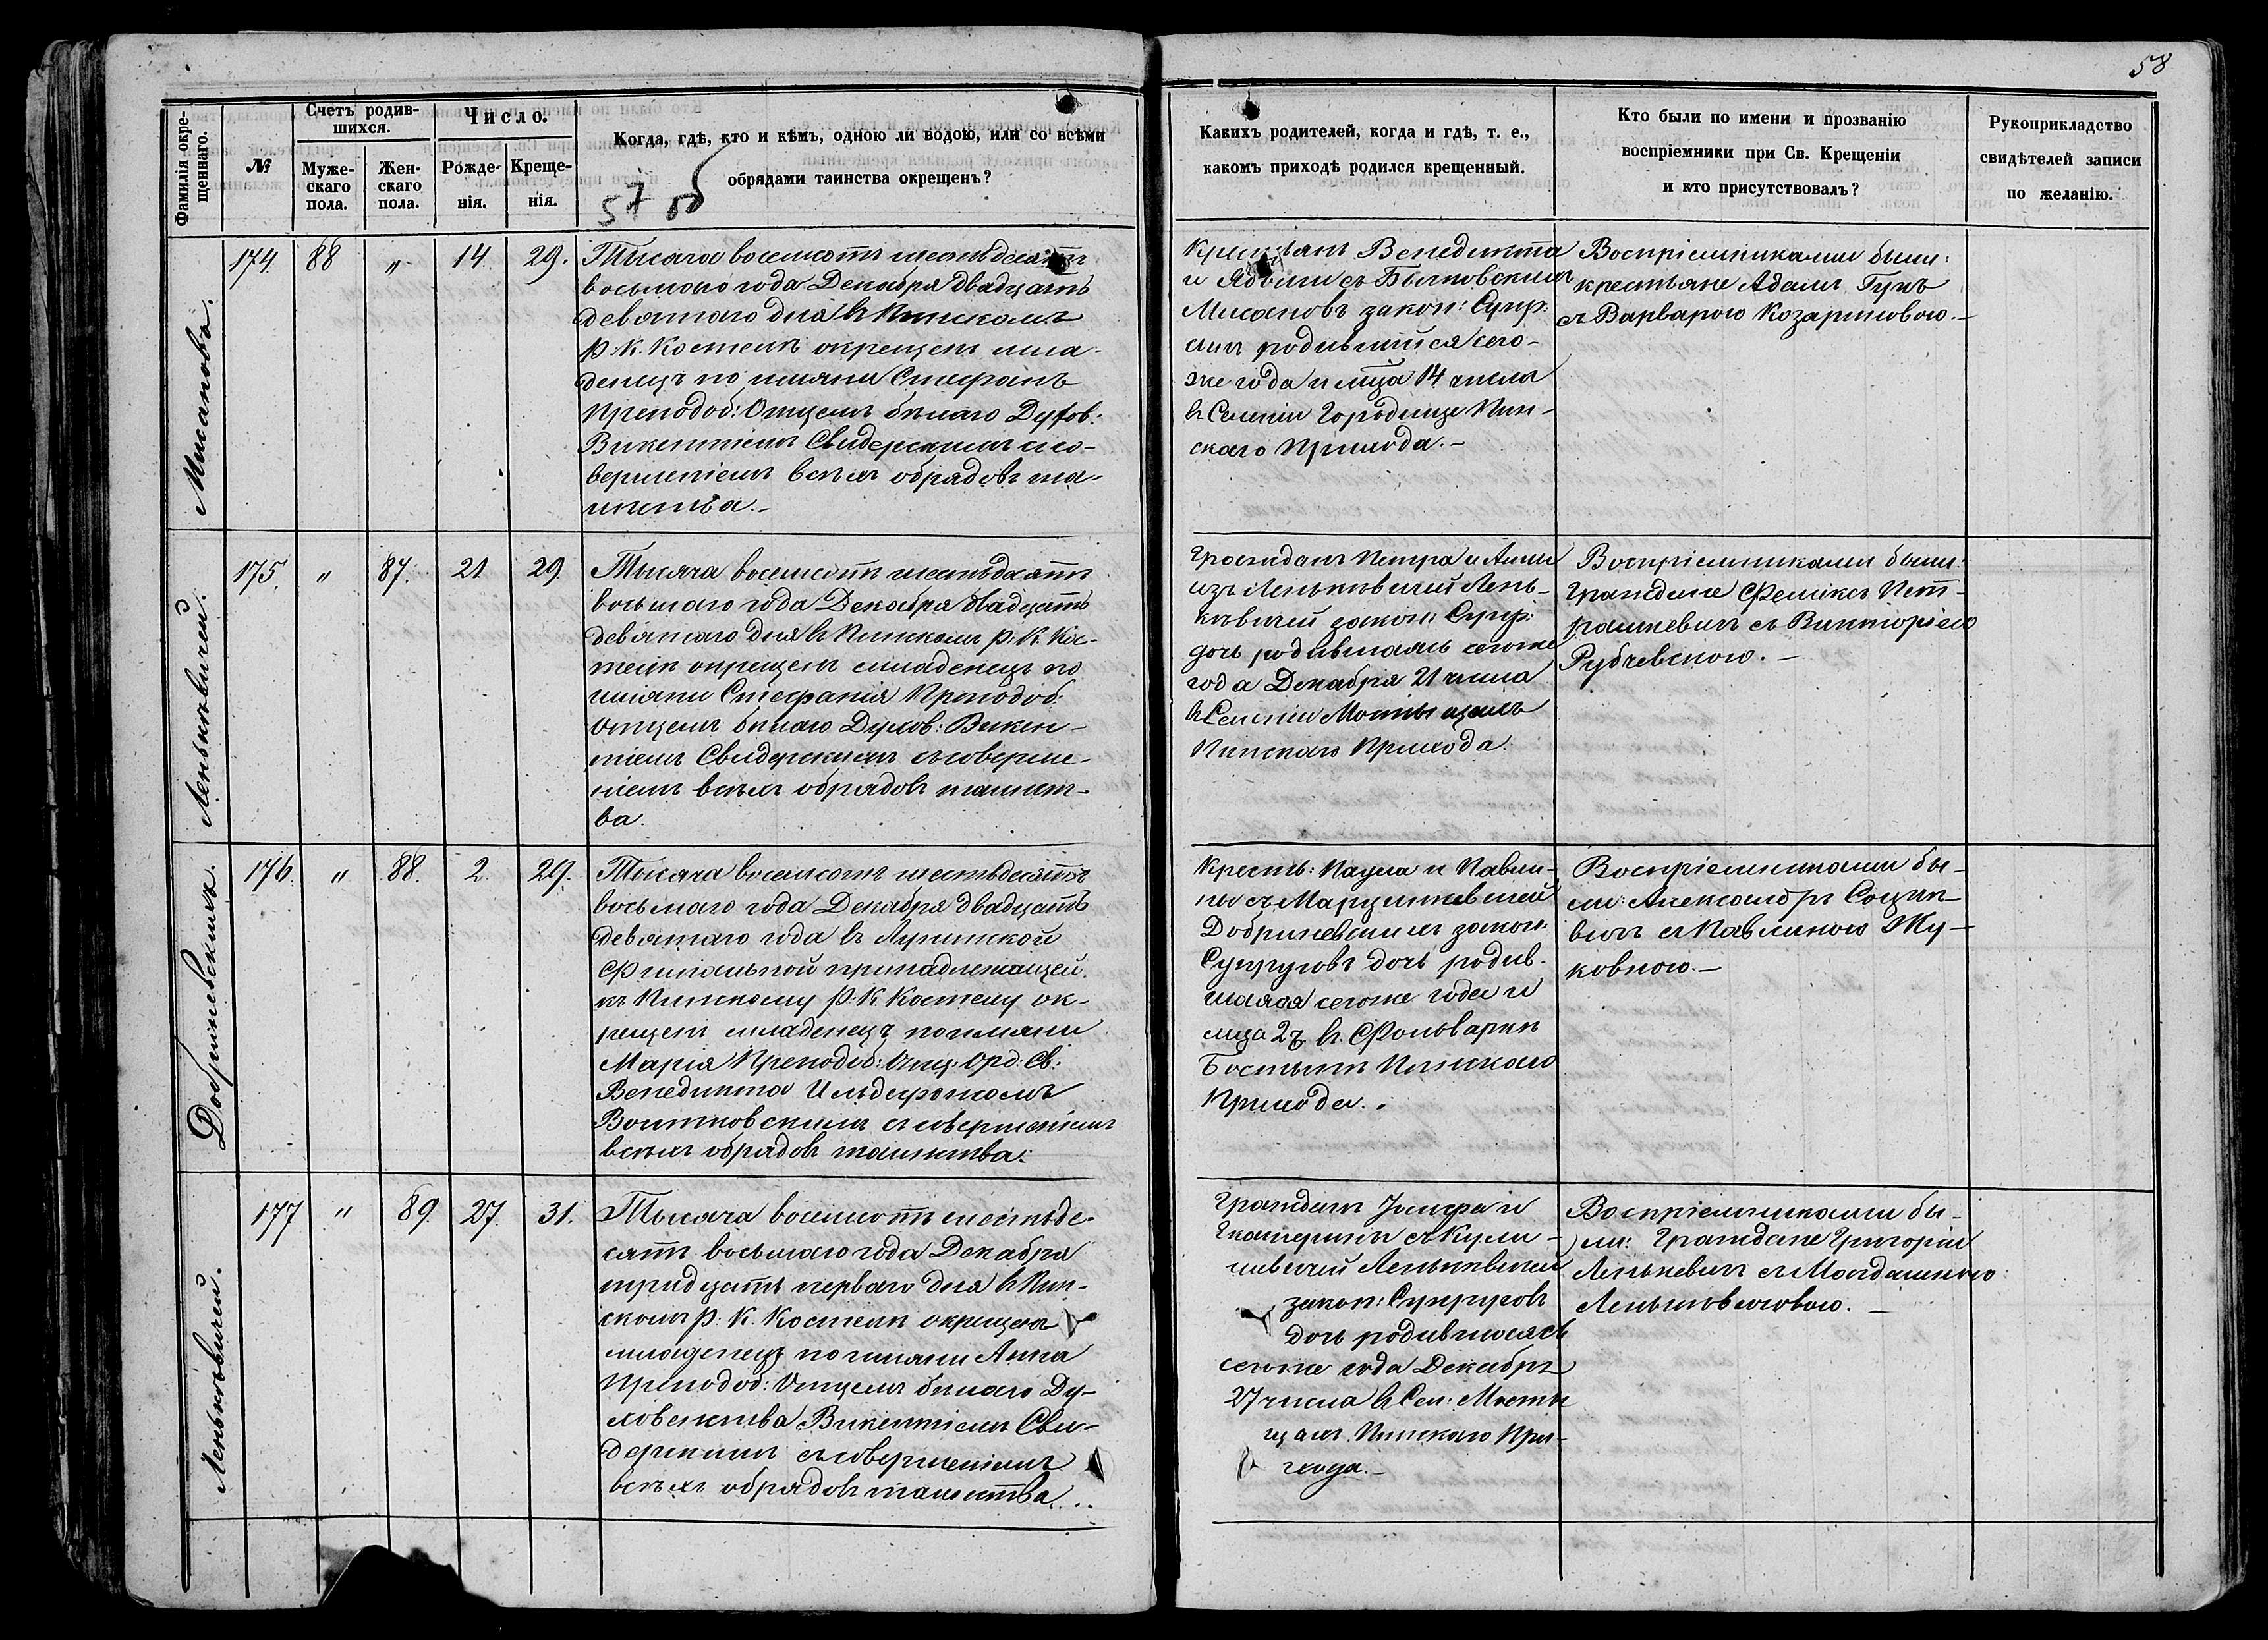 58
Фамилія окре-
щеннаго.
№
Счетъ родив-
шихся.
Муже-
скаго
пола.
Жен-
скаго
пола.
Число.
Рожде-
нія.
Креще-
нія.
Когда, гдѣ, кто и кѣмъ, одною ли водою, или со всѣми
обрядами таинства окрещенъ?
57 об
Какихъ родителей, когда и гдѣ, т. е.,
какомъ приходѣ родился крещенный.
Кто были по имени и прозванію
воспріемники при Св. Крещеніи
и кто присутствовалъ?
Рукоприкладство
свидѣтелей записи
по желанію.
Мисанова.
174. 88 „ 14. 29.
Тысяча восемсотъ шестьдесятъ
восьмаго года Декабря двадцать
девятаго дня въ Пинскомъ
Р. К. Костелѣ окрещенъ мла-
денецъ по имяни Стефанъ
Преподоб: Отцемъ бѣлаго Духов:
Викентіемъ Свидерскимъ с со-
вершеніемъ всѣхъ обрядовъ та-
инства.-
Крестьянъ Венедикта
и Ядвиги съ
Мисановъ закон: Супр:
сынъ родившійся сего-
же года и мца 14 числа
въ Селеніи Городище Пин-
скаго Прихода.-
Воспріемниками были:
крестьяне Адамъ Гукъ
съ Варварою Козариновою.-
Леньковичей.
175. „ 87. 21 29.
Тысяча восемсотъ шестьдесятъ
восьмаго года Декабря двадцать
девятаго дня въ Пинскомъ Р. К. Кос-
телѣ окрещенъ младенецъ по
имяни Стефанія Преподоб:
Отцемъ бѣлаго Духов: Викен-
тіемъ Свидерскимъ съ соверше-
ніемъ всѣхъ обрядовъ таинст-
ва.
Гражданъ Петра и Анны
изъ Леньковичей Лень-
ковичей закон: Супр:
дочь родившаясь сегоже
года Декабря 21 числа
въ Селеніи Местковичахъ
Пинскаго Прихода.
Воспріемниками были:
Граждане Феликсъ Пет-
рашкевичъ съ Викторіею
Рубчевскою.-
Добриневскихъ.
176. „ 88. 2. 29.
Тысяча восемсотъ шестьдесятъ
восьмаго года Декабря двадцать
девятаго года въ Лунинской
Филіальной принадлежащей
къ Пинскому Р. К. Костелу ок-
рещенъ младенецъ по имяни
Марія Преподоб: Отц: Орд: Св:
Венедикта Ильдефонсомъ
Войтковскимъ съ совершеніемъ
всѣхъ обрядовъ таинства:
Крестъ: Паула и Павли-
ны съ Марцинкевичей
Добриневскихъ закон:
Супруговъ дочь родив-
шаяся сегоже года и
мца 2 ч. въ Фольваркѣ
Бостынѣ Пинскаго
Прихода..
Воспріемниками бы-
ли: Александръ
съ Павлиною Жу-
ковною.-
Леньковичей.
177 „ 89. 27. 31.
Тысяча восемсотъ шестьде-
сятъ восьмаго года Декабря
тридцать перваго дня въ Пин-
скомъ Р. К. Костелѣ окрещенъ
младенецъ по имяни Анна
Преподоб: Отцемъ бѣлаго Ду-
ховенства Викентіемъ Сви-
дерскимъ съ совершеніемъ
всѣхъ обрядовъ таинства...
Гражданъ Іосифа и
Екатерины съ Кули-
Леньковичей
закон: Супруговъ
дочь родившаясь
сегоже года Декабря
27 числа въ Сел:
Пинскаго При-
хода.-
Воспріемниками бы-
ли: Граждане Григорій
Ленькевичъ съ Магдаленою
Леньковичовою.-